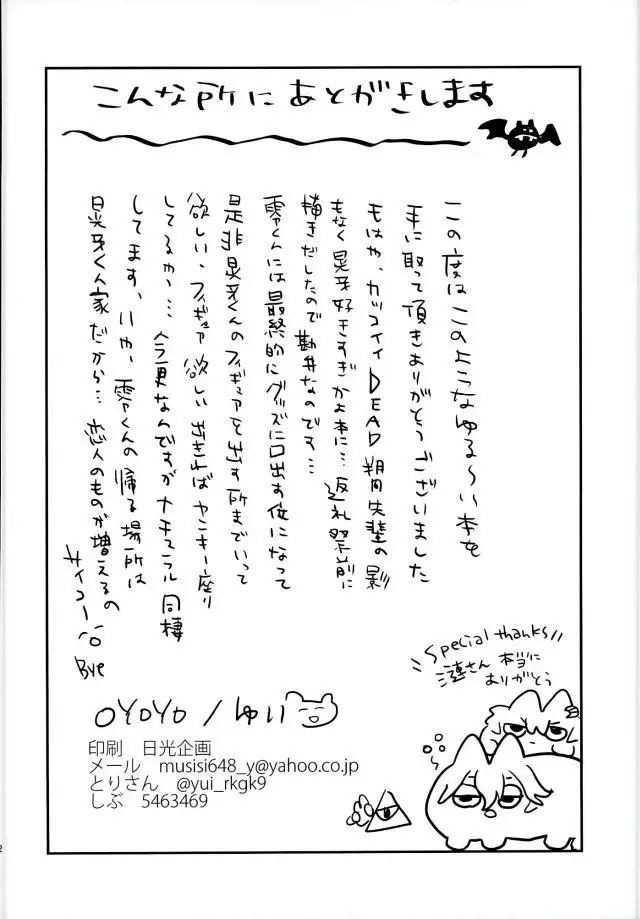 こんな所にあとがきします
この度はこのようなゆる〜い本を
手に取って頂きありがとうございました
もはや、カッコイイDEAD朔間先輩の影
もなく晃牙好きすぎかよ本に…返礼祭前に
描きだしたので勘弁なのです…
零くんには最終的にグッズに口出す位になって
是非晃牙くんのフィギュアを出す所までいって
欲しい、フィギュア欲しい 出きればヤンキー座り
してるやつ…今更なんですがナチュラル同棲
してます、いや、零くんの帰る場所は
晃牙くん家だから…恋人のものが増えるの
サイコー
Bye
Special thanks!!
さん 本当に
ありがとう
OYOYO/ゆい
印刷 日光企画
メール musisi648_y@yahoo.co.jp
とりさん @yui_rkgk9
しぶ 5463469
2